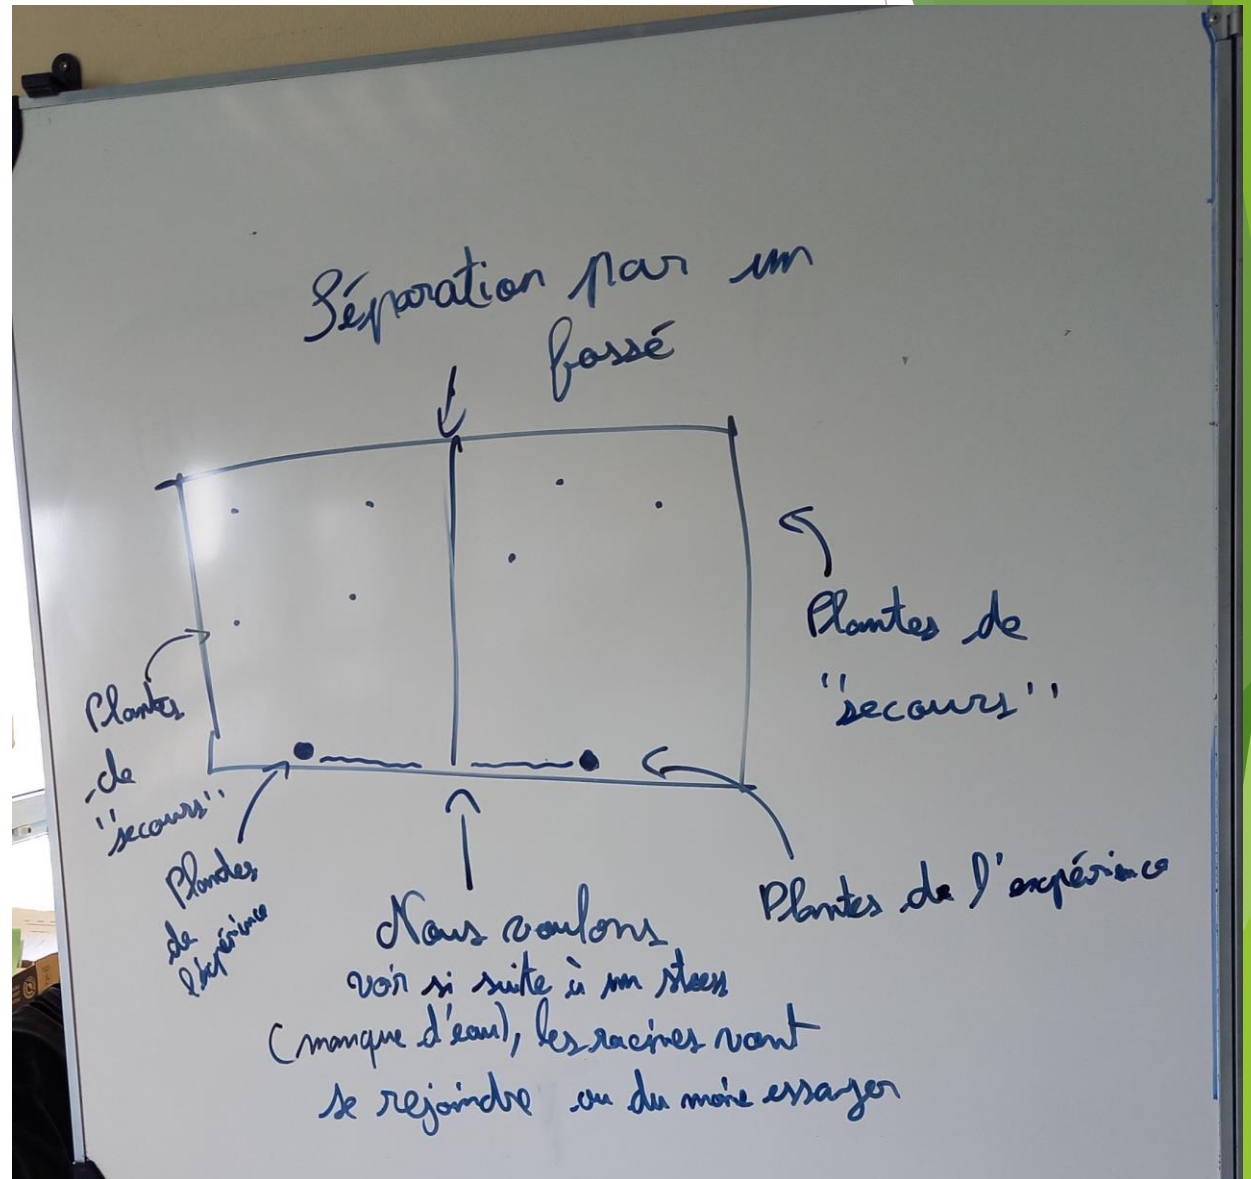 Séparation par un
fossé
Plantes de
"secours"
Plantes
de
"secours"
Plantes
de
l'expérience
Plantes de l'expérience
Nous voulons
voir si suite à un stress
(manque d'eau), les racines vont
se rejoindre ou du moins essayer